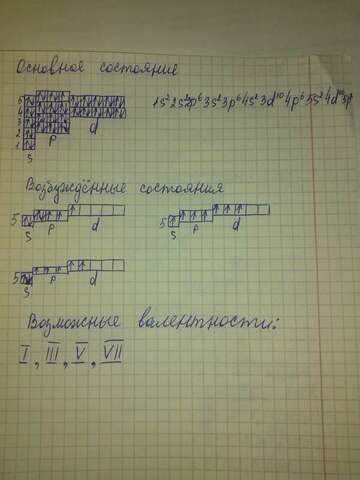 Основное состояние
1s²2s²2p⁶3s²3p⁶4s²3d¹⁰4p⁶5s²4d¹⁰5p⁵
5
4
3
2
1
s p d
Возбуждённые состояния
5 s p d
5 s p d
5 s p d
Возможные валентности:
I, III, V, VII